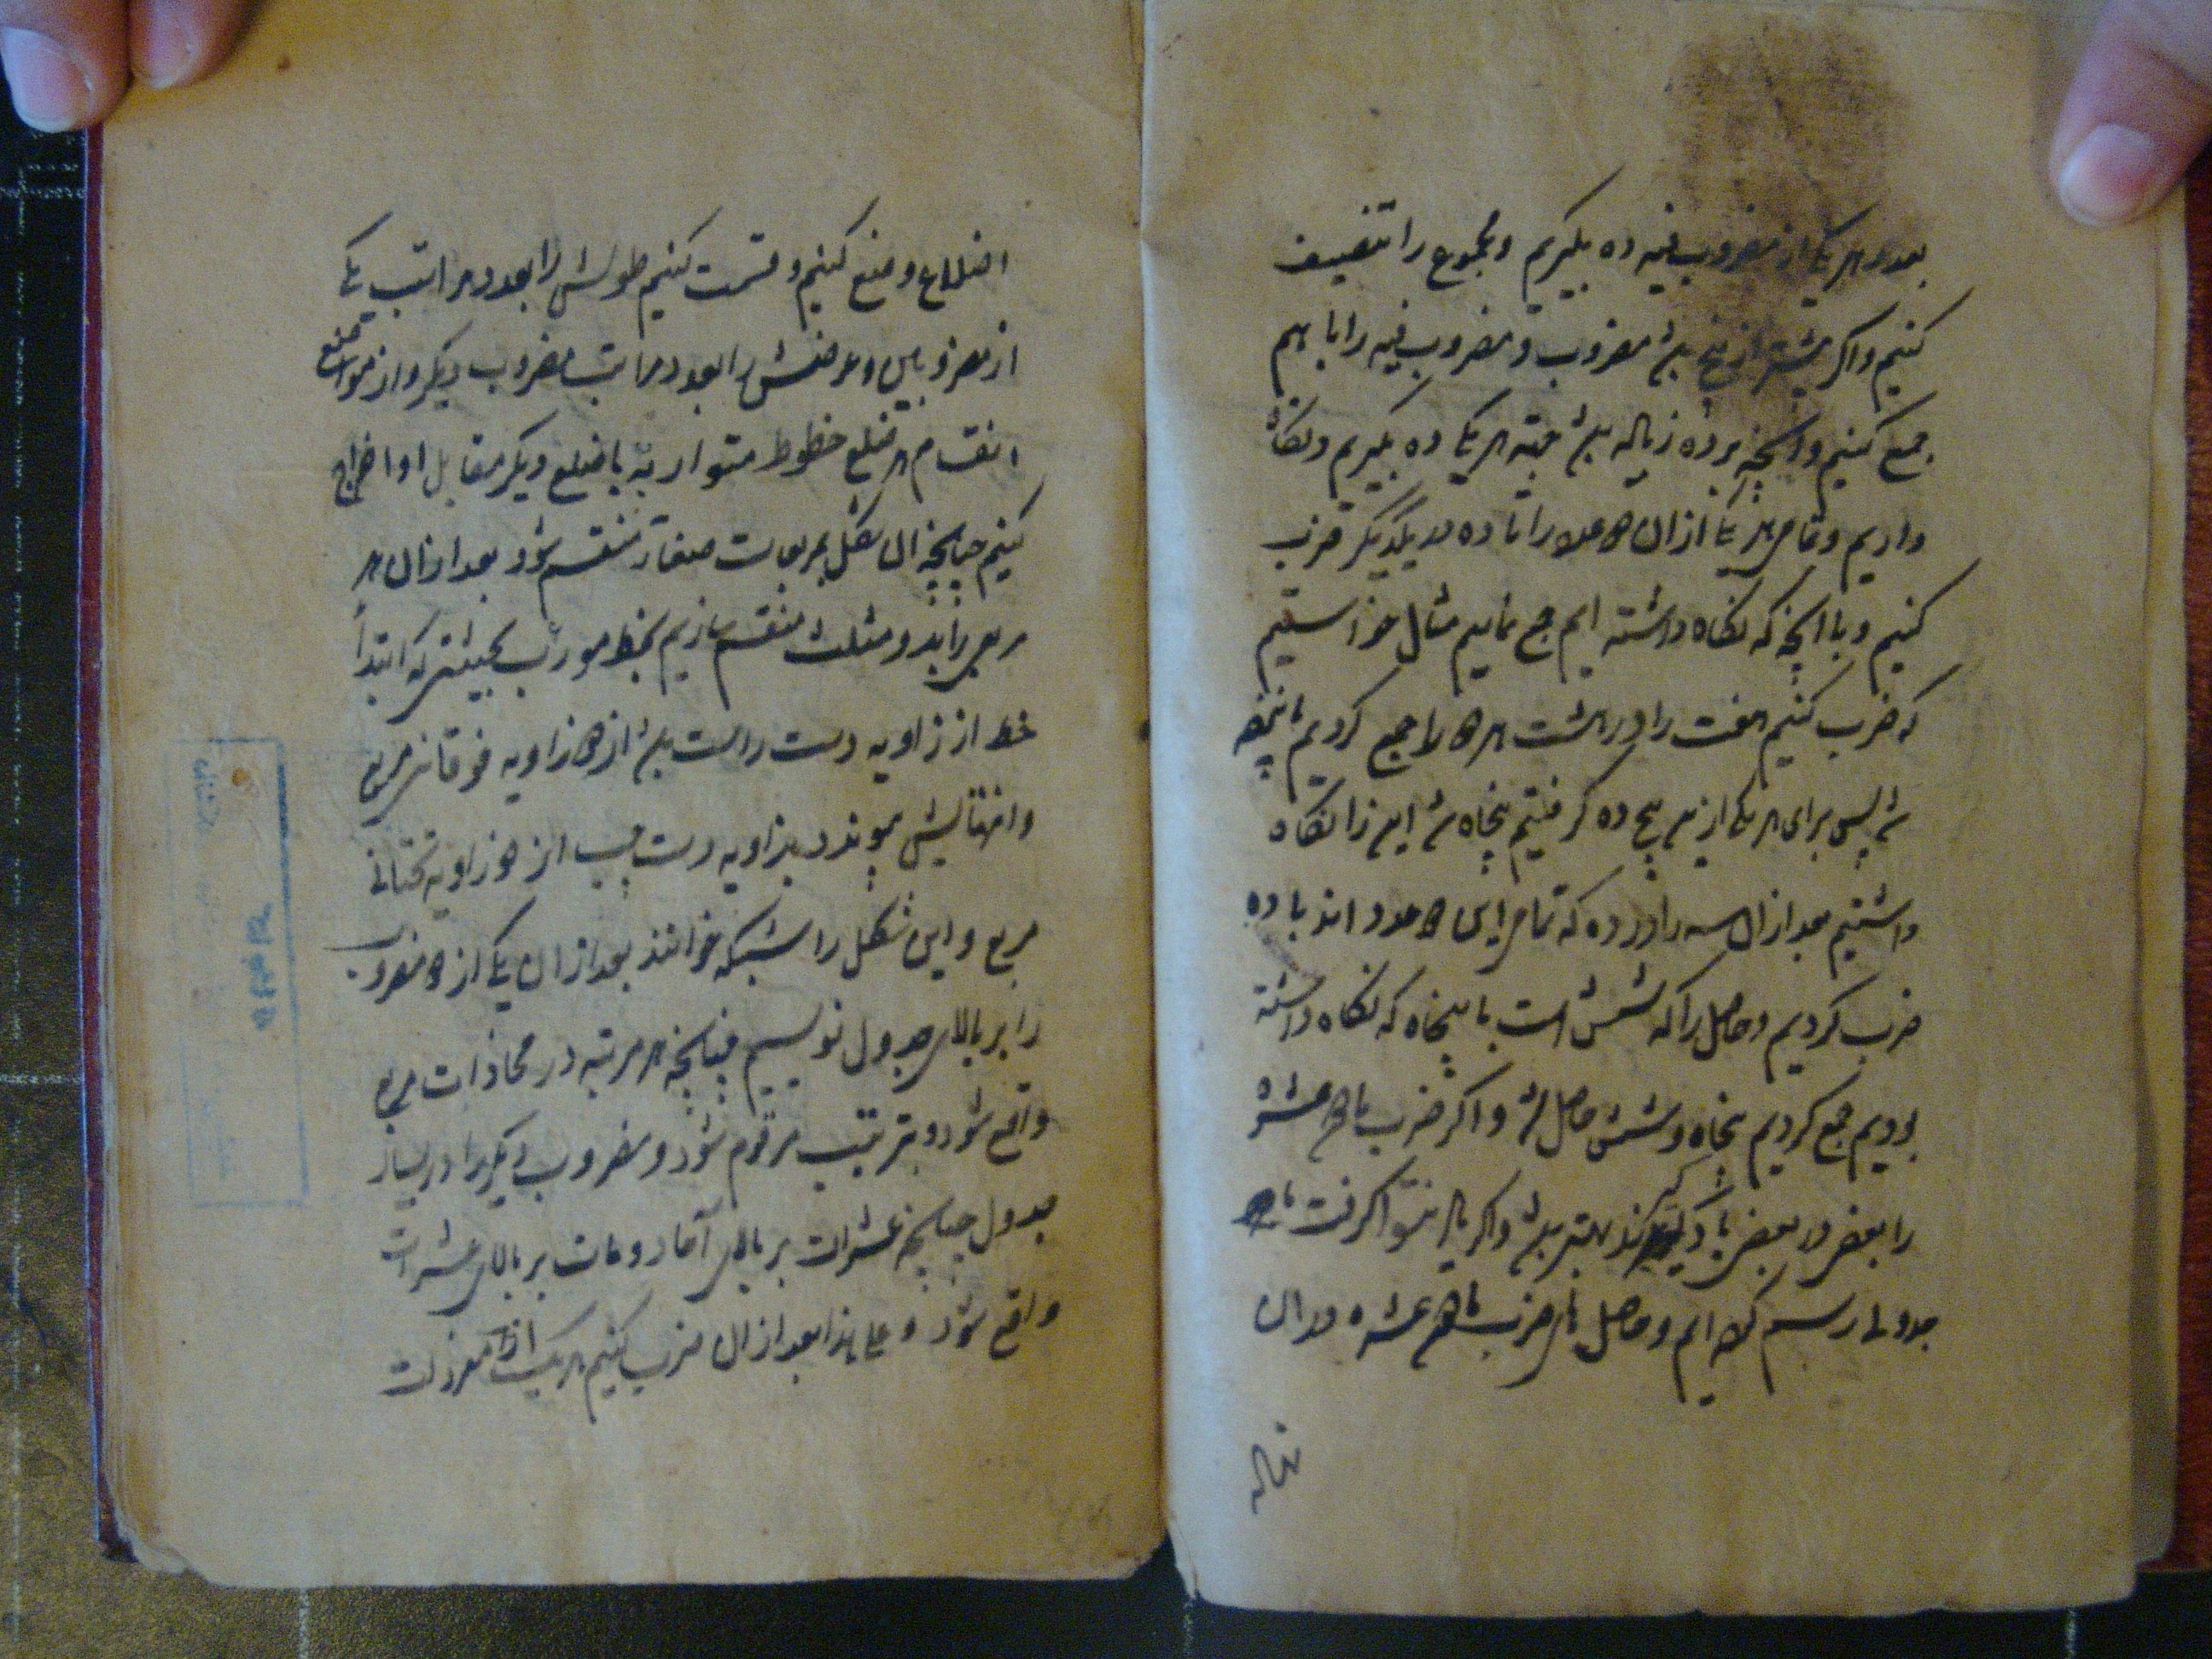 بعدد هر یک از مضروب فیه ده بگیریم و مجموع را تنصیف
کنیم و اگر بیشتر از پنج باشد مضروب و مضروب فیه را با هم
جمع کنیم و آنچه بر ده زیاده باشد بجهة هر یک ده بگیریم و نگاه
داریم و تمامی هر یک از آن دو عدد را تا ده در یکدیگر ضرب
کنیم و با آنچه که نگاه داشته ایم جمع نماییم مثال خواستیم
که ضرب کنیم هفت را در هشت هر دو را جمع کردیم پانزده
شد پس برای هر یک از پنج ده گرفتیم پنجاه شد این را نگاه
داشتیم بعد از آن سه را در دو که تمامی این دو عدد اند با ده
ضرب کردیم و حاصل را که شش است با پنجاه که نگاه داشته
بودیم جمع کردیم پنجاه و شش حاصل شد و اگر ضرب ما دون عشره
را بعضی در بعضی یاد گیرند بهتر باشد و اگر یاد نتوان گرفت ما
جدولی رسم کرده ایم و حاصل ضرب ما دون عشره در آن
اضلاع وضع کنیم و قسمت کنیم طولش را بعدد مراتب یکی
از مضروبین و عرضش را بعدد مراتب مضروب دیگر و از مواضع
انقسام هر ضلع خطوط متوازیه با ضلع دیگر مقابل او اخراج
کنیم چنانچه آن شکل بمربعات صغار منقسم شود بعد از آن هر
مربعی را بدو مثلث منقسم سازیم بخط مورب بحیثیتی که ابتداء
خط از زاویه دست راست باشد از دو زاویه فوقانی مربع
و انتهایش پیوندد بزاویه دست چپ از دو زاویه تحتانی
مربع و این شکل را شبکه خوانند بعد از آن یکی از دو مضروب
را بر بالای جدول نویسیم چنانچه هر مرتبه در محاذات مربعی
واقع شود و بترتیب مرقوم شود و مضروب دیگر را در یسار
جدول چنانچه عشرات بر بالای آحاد و مات بر بالای عشرات
واقع شود و علی هذا بعد از آن ضرب کنیم هر یک از مفردات